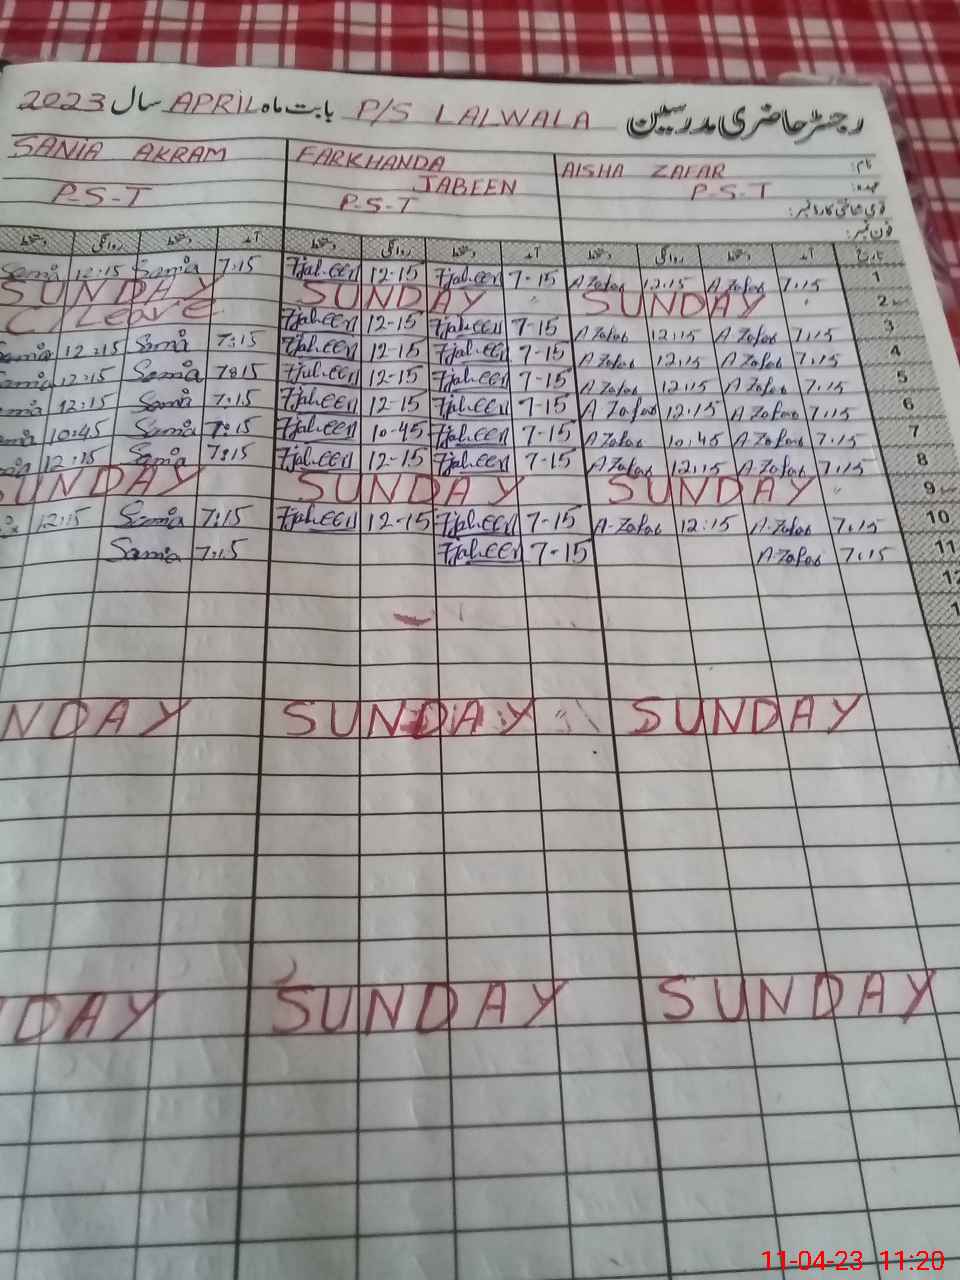 رجسٹر حاضری مدرسین P/S LALWALA بابت ماہ APRIL سال 2023
SANIA AKRAM FARKHANDA JABEEN AISHA ZAFAR نام:
P-S-T P-S-T P-S-T عہدہ:
قومی شناختی کارڈ نمبر:
فون نمبر:
دستخط روانگی دستخط آمد دستخط روانگی دستخط آمد دستخط روانگی دستخط آمد تاریخ
Samia 12:15 Samia 7:15 Fjabeen 12-15 Fjabeen 7-15 A Zafar 12:15 A Zafar 7:15 1
SUNDAY SUNDAY SUNDAY 2
C/Leave Fjabeen 12-15 Fjabeen 7-15 A Zafar 12:15 A Zafar 7:15 3
Samia 12:15 Samia 7:15 Fjabeen 12-15 Fjabeen 7-15 A Zafar 12:15 A Zafar 7:15 4
Samia 12:15 Samia 7:15 Fjabeen 12-15 Fjabeen 7-15 A Zafar 12:15 A Zafar 7:15 5
12:15 Samia 7:15 Fjabeen 12-15 Fjabeen 7-15 A Zafar 12:15 A Zafar 7:15 6
10:45 Samia 7:15 Fjabeen 10-45 Fjabeen 7-15 A Zafar 10:45 A Zafar 7:15 7
12:15 Samia 7:15 Fjabeen 12-15 Fjabeen 7-15 A Zafar 12:15 A Zafar 7:15 8
SUNDAY SUNDAY SUNDAY 9
12:15 Samia 7:15 Fjabeen 12-15 Fjabeen 7-15 A-Zafar 12:15 A-Zafar 7:15 10
Samia 7:15 Fjabeen 7-15 A-Zafar 7:15 11
12
1
NDAY SUNDAY SUNDAY
DAY SUNDAY SUNDAY
11-04-23 11:20